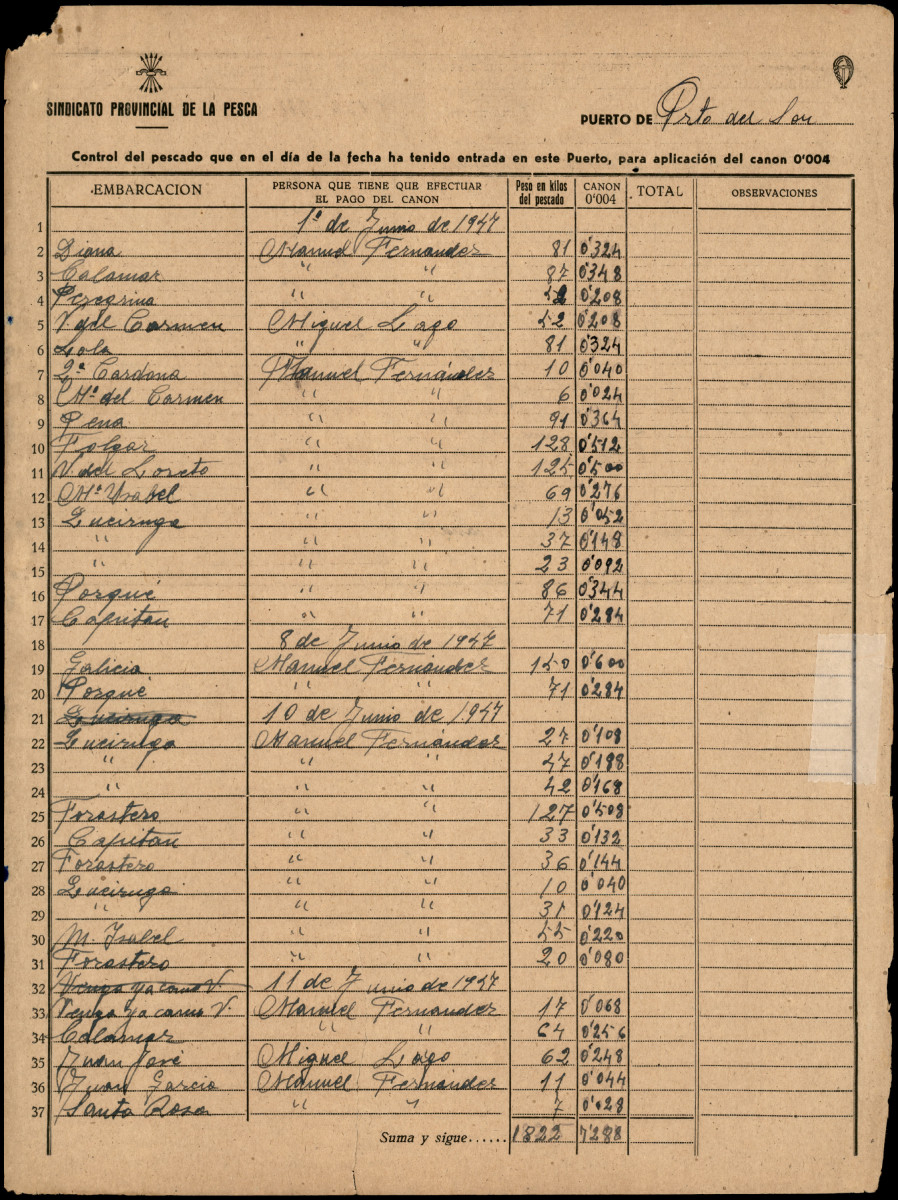 SINDICATO PROVINCIAL DE LA PESCA
PUERTO DE Prto del Son
Control del pescado que en el día de la fecha ha tenido entrada en este Puerto, para aplicación del canon 0'004
EMBARCACION PERSONA QUE TIENE QUE EFECTUAR EL PAGO DEL CANON Peso en kilos del pescado CANON 0'004 TOTAL OBSERVACIONES
1 1º de Junio de 1947
2 Diana Manuel Fernández 81 0'324
3 Calamar " " 87 0'348
4 Peregrina " " 52 0'208
5 V. del Carmen Miguel Lago 52 0'208
6 Lola " " 81 0'324
7 2ª Cardona Manuel Fernández 10 0'040
8 Mª del Carmen " " 6 0'024
9 Pena " " 91 0'364
10 Folgar " " 128 0'512
11 V. del Loreto " " 125 0'500
12 Mª Ysabel " " 69 0'276
13 Queiruga " " 13 0'052
14 " " " 37 0'148
15 " " " 23 0'092
16 Porqué " " 86 0'344
17 Capitan " " 71 0'284
18 8 de Junio de 1947
19 Galicia Manuel Fernández 150 0'600
20 Porqué " " 71 0'284
21 Queiruga 10 de Junio de 1947
22 Queiruga Manuel Fernández 27 0'108
23 " " " 47 0'188
24 " " " 42 0'168
25 Forastero " " 127 0'508
26 Capitan " " 33 0'132
27 Forastero " " 36 0'144
28 Queiruga " " 10 0'040
29 " " " 31 0'124
30 M. Isabel " " 55 0'220
31 Forastero " " 20 0'080
32 Venga ya como V. 11 de Junio de 1947
33 Venga ya como V. Manuel Fernández 17 0'068
34 Calamar " " 64 0'256
35 Juan José Miguel Lago 62 0'248
36 Juan Garcia Manuel Fernández 11 0'044
37 Santa Rosa " " 7 0'028
Suma y sigue...... 1822 7'288